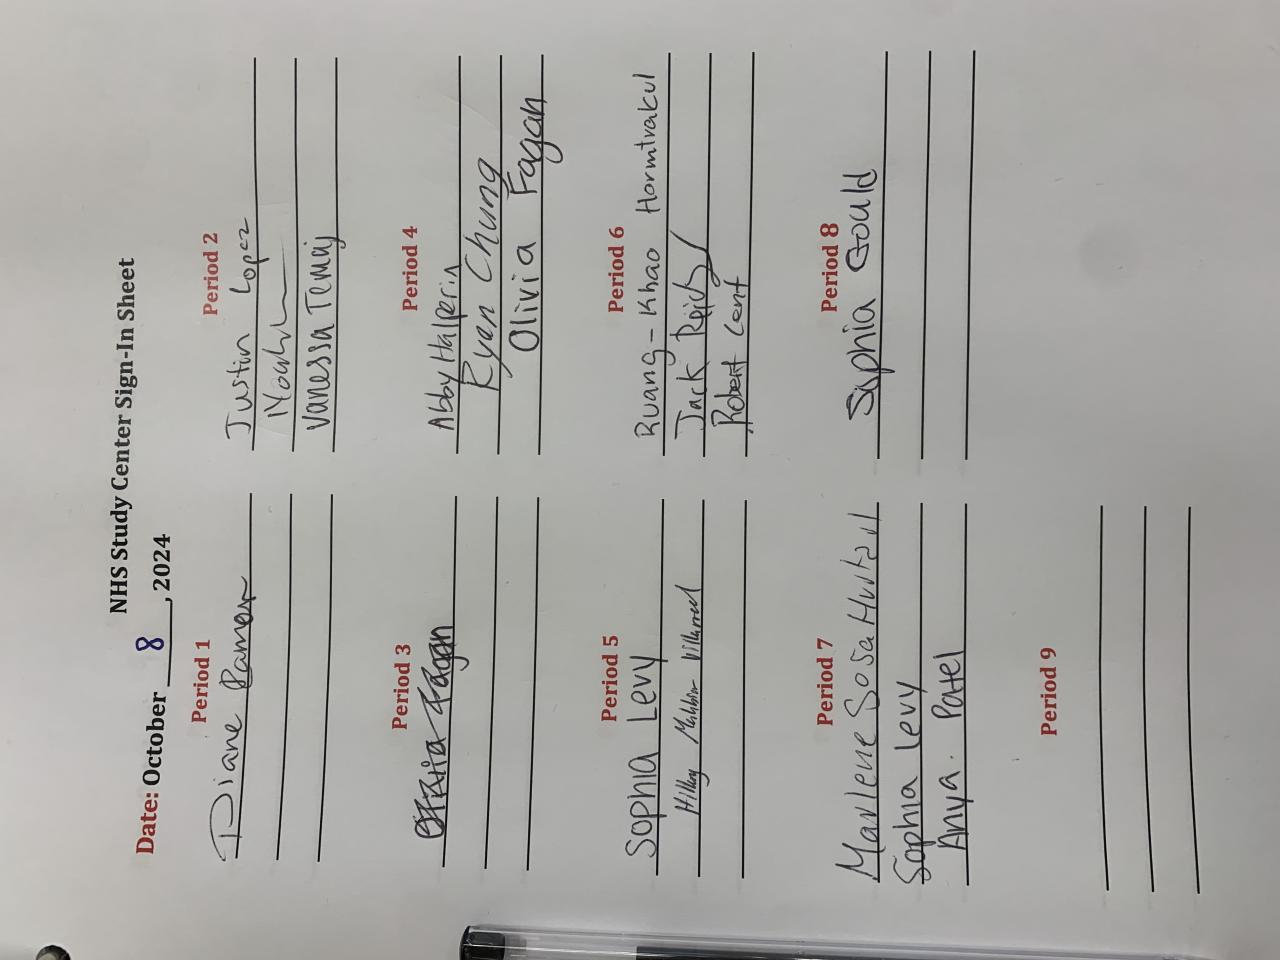 NHS Study Center Sign-In Sheet
Date: October 8, 2024
Period 1
Diane Ramos
Period 2
Justin Lopez
Vanessa Temaj
Period 3
Olivia Fagan
Period 4
Abby Halperin
Ryan Chung
Olivia Fagan
Period 5
SOPHIA LEVY
Hillary Villarreal
Period 6
Ruang-Khao Hormtrakul
Jack Reich
Robert Lent
Period 7
Marlene Sosa
Sophia Levy
Anya. Patel
Period 8
Sophia Gould
Period 9